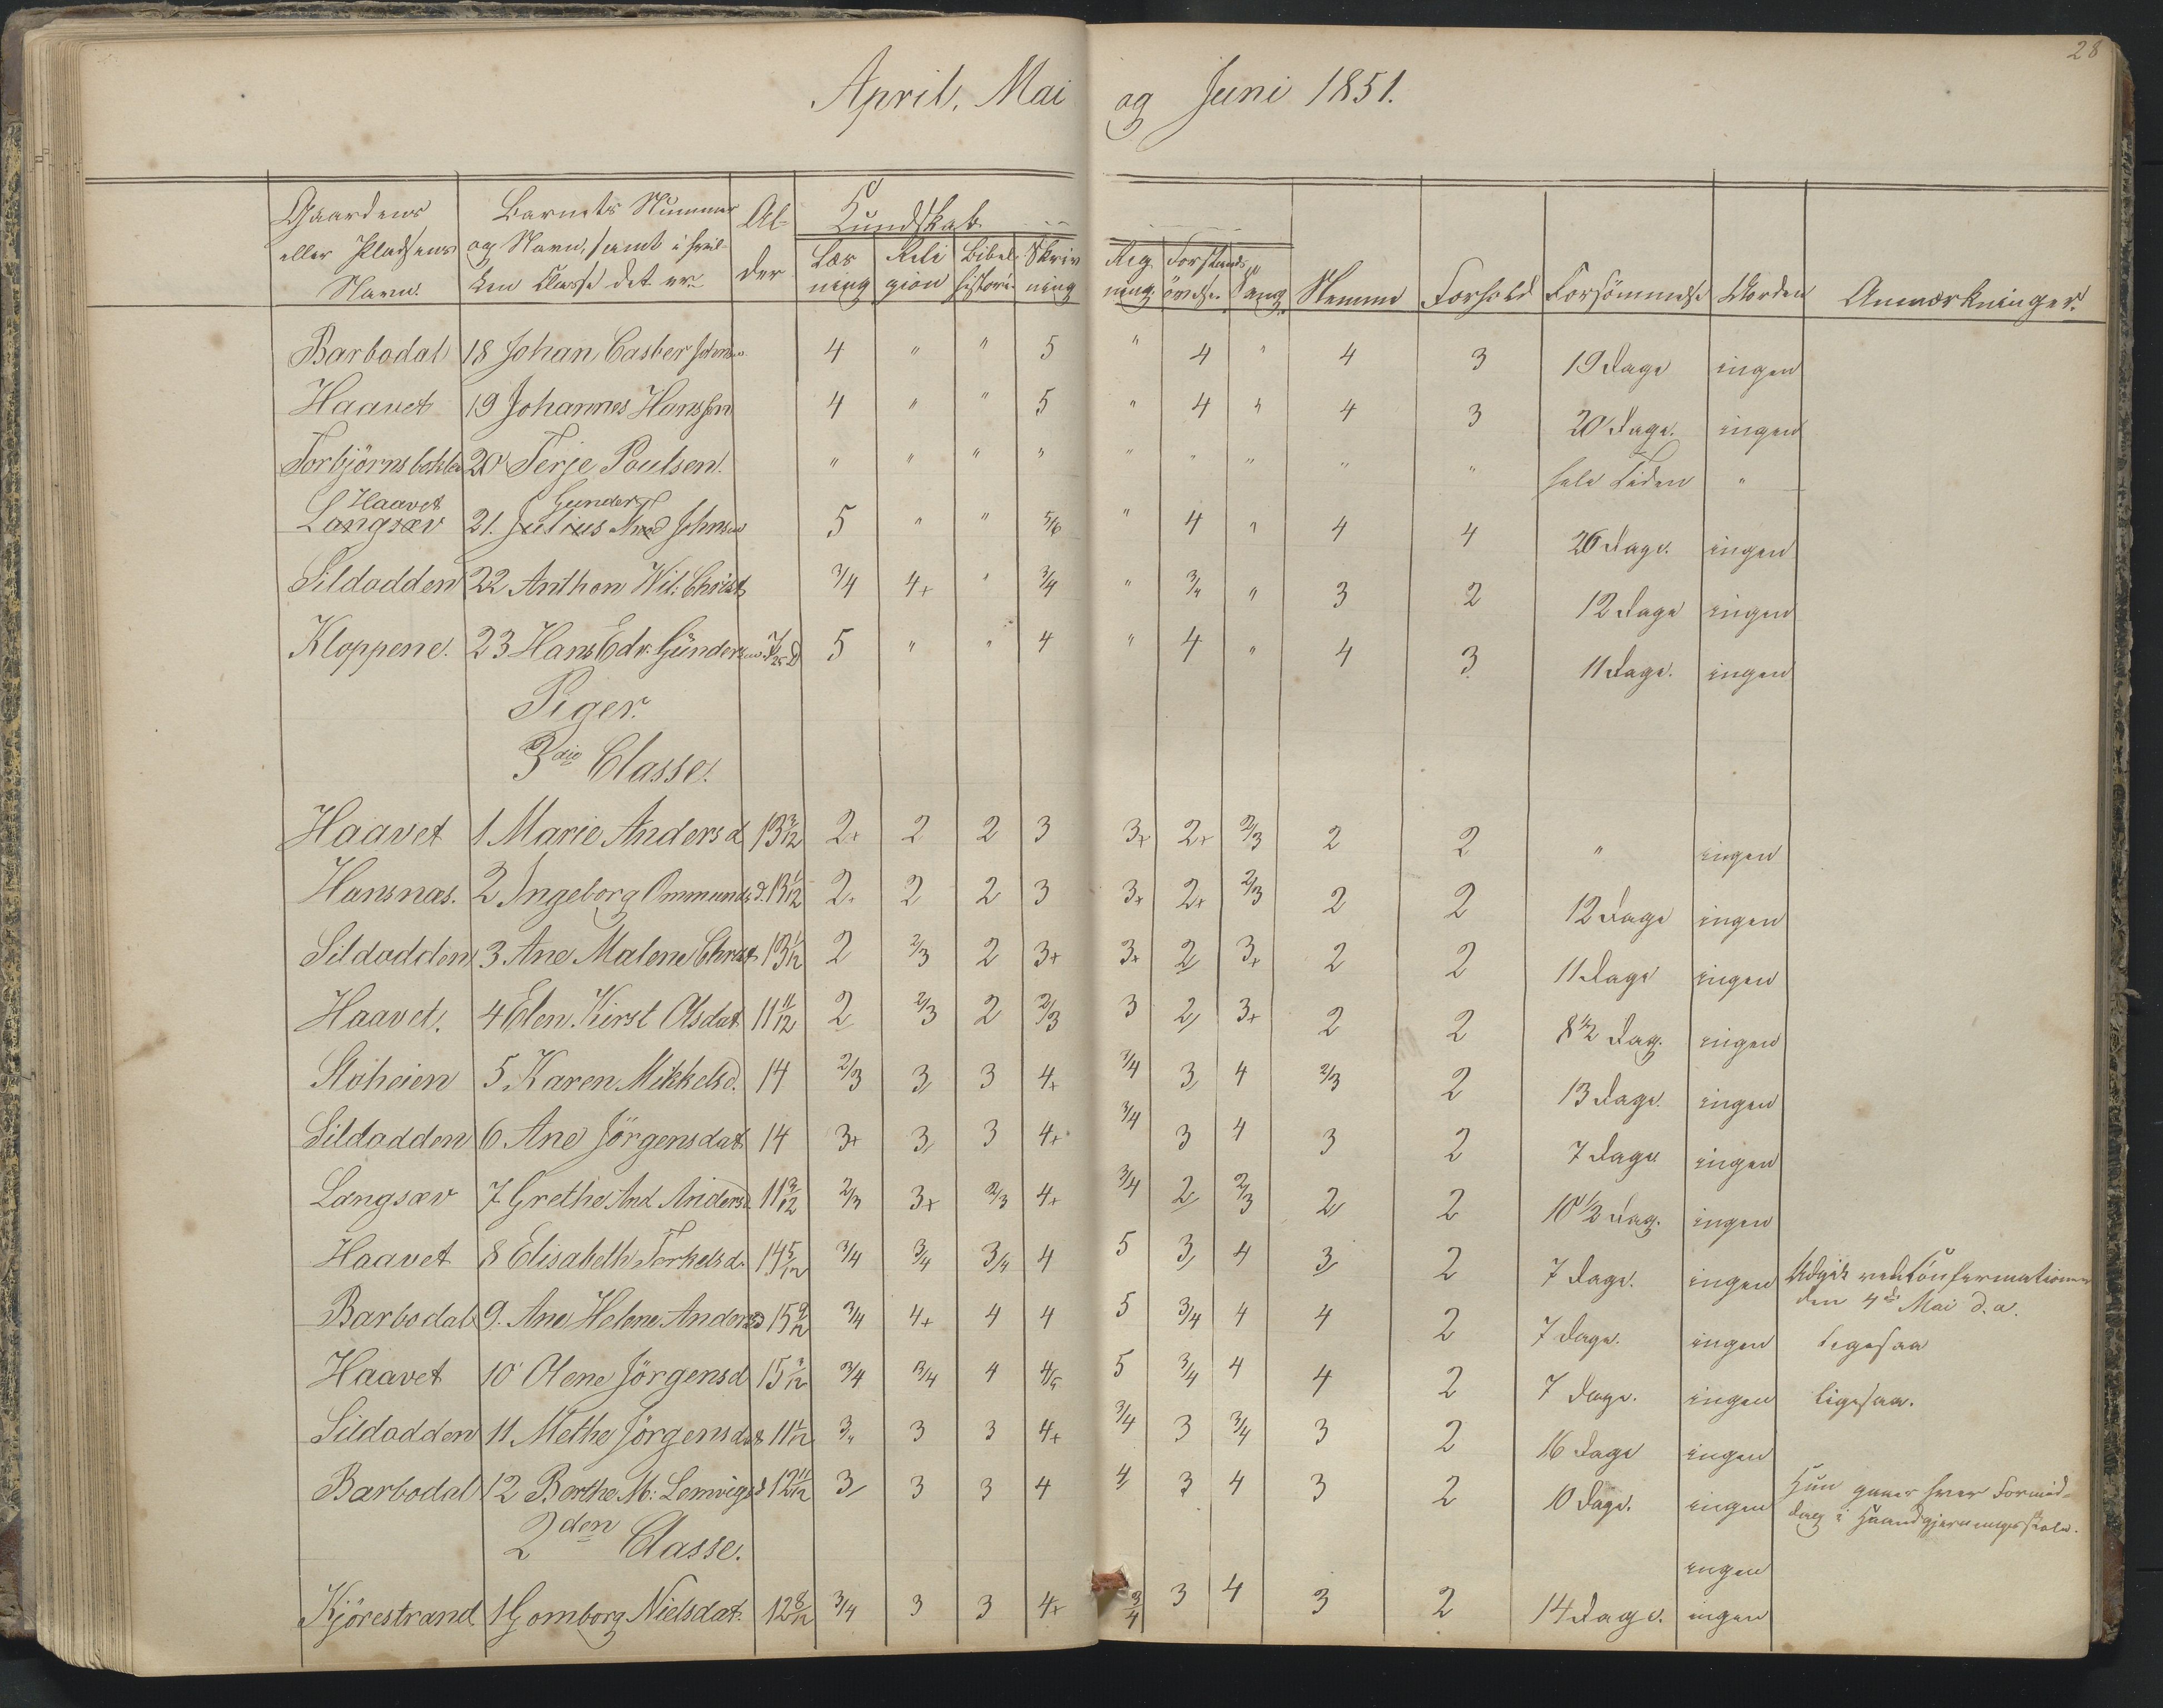 28
April, Mai og Juni 1851.
Gaardens eller Pladsens Navn.
Barnets Nummer og Navn, samt i hvilken Classe det er.
Alder
Kundskab
Læsning
Religion
Bibelhistorie
Skrivning
Regning
Forstandsövelse
Sang
Nemme
Forhold
Forsömmelse
Orden
Anmærkninger.
Barbodal 18 Johan Casber 4 " " 5 " 4 " 4 3 19 Dage ingen
Haavet 19 Johannes Hanssen 4 " " 5 " 4 " 4 3 20 Dage. ingen
20 Terje Poulsen. " " " " " " " " " hele Tiden "
Haavet Gunder
Langsæv 21. Julius Johnsen 5 " " 5/6 " 4 " 4 4 26 Dage. ingen
Sildodden 22 Anthon Wil: Christ 3/4 4+ " 3/4 " 3/4 " 3 2 12 Dage ingen
Kloppene. 23 Hans Edv: Gündersen 5 " " 4 " 4 " 4 3 11 Dage. ingen
Piger.
3die Classe.
Haavet 1 Marie Andersd 13 3/12 2+ 2 2 3 3+ 2+ 2/3 2 2 " ingen
Hansnæs. 2 Ingeborg Ommundsd. 13 1/12 2. 2 2 3 3+ 2+ 2/3 2 2 12 Dage ingen
Sildodden 3 Ane Malene Christ 13 1/12 2 2/3 2 3+ 3+ 2 3+ 2 2 11 Dage ingen
Haavet. 4 Elen. Kirst Olsdat 11 11/12 2 2/3 2 2/3 3 2 3+ 2 2 8 1/2 Dag. ingen
Stöheien 5 Karen Mikkelsd. 14 2/3 3 3 4+ 3/4 3 4 2/3 2 13 Dage. ingen
Sildodden 6 Ane Jörgensdat 14 3+ 3 3 4+ 3/4 3 4 3 2 7 Dage ingen
Langsæv 7 Grethe And. Andersd 11 3/12 2/3 3+ 2/3 4+ 3/4 2 2/3 2 2 10 1/2 Dag. ingen
Haavet 8 Elisabeth Torkelsd. 14 5/12 3/4 3/4 3/4 4 5 3 4 3 2 7 Dage. ingen Udgik ved Confirmationen
den 4de Mai d.a.
Barbodal 9. Ane Helene Andersd 15 9/12 3/4 4+ 4 4 5 3/4 4 4 2 7 Dage. ingen ligesaa
Haavet 10 Olene Jörgensd 15 3/12 3/4 3/4 4 4/5 5 3/4 4 4 2 7 Dage. ingen ligesaa.
Sildodden 11 Methe Jörgensdat 11 1/12 3 3 3 4+ 3/4 3 3/4 3 2 16 Dage ingen
Barbodal 12 Berthe M: Lemvigsd 12 11/12 3 3 3 4 4 3 4 3 2 10 Dage. ingen Hun gaaer hver Formid-
dag i Haandgjerningsskole.
2den Classe.
ingen
Kjörestrand 1 Gomborg Nielsdat. 12 8/12 3/4 3 3 4+ 3/4 3 4 3 2 14 Dage. ingen